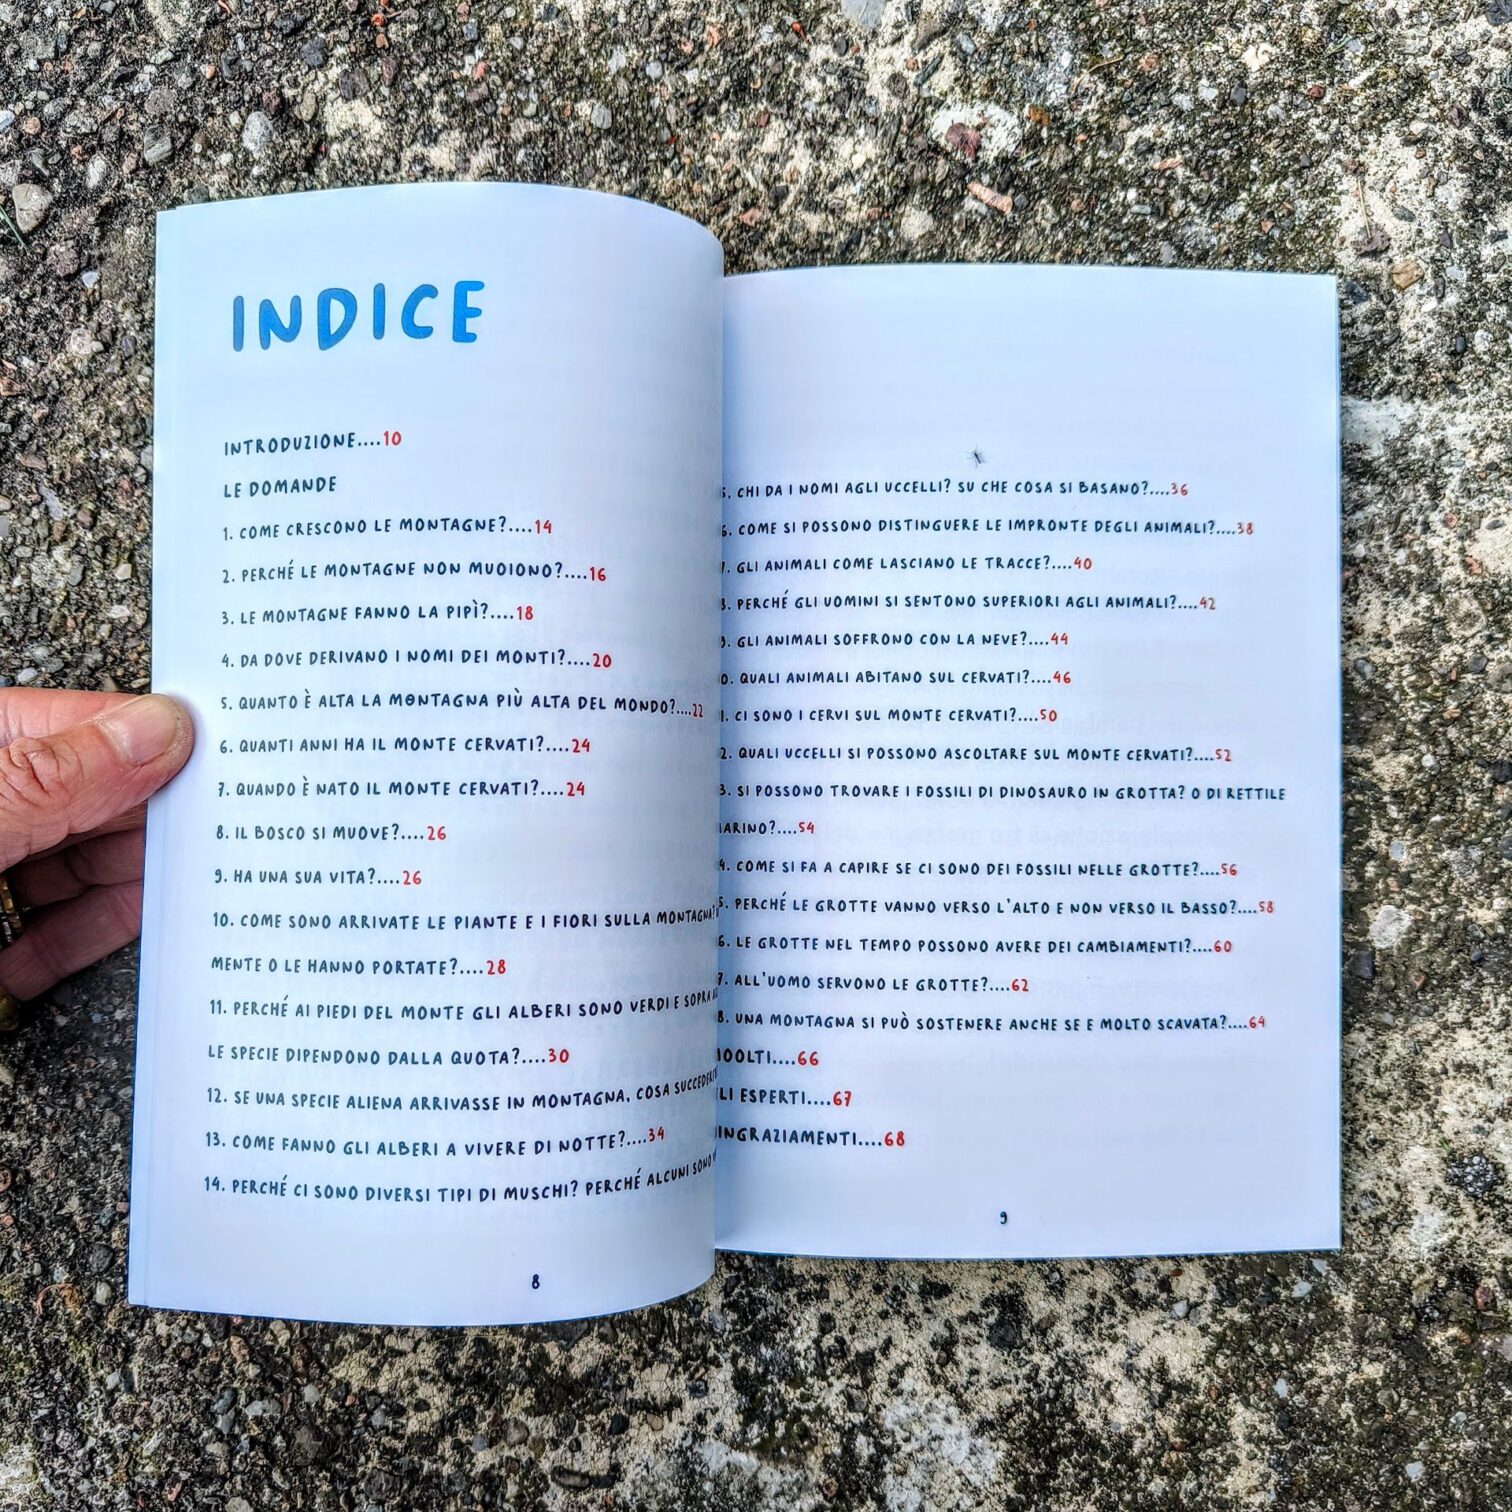 INDICE
INTRODUZIONE....10
LE DOMANDE
1. COME CRESCONO LE MONTAGNE?....14
2. PERCHÉ LE MONTAGNE NON MUOIONO?....16
3. LE MONTAGNE FANNO LA PIPÌ?....18
4. DA DOVE DERIVANO I NOMI DEI MONTI?....20
5. QUANTO È ALTA LA MONTAGNA PIÙ ALTA DEL MONDO?....22
6. QUANTI ANNI HA IL MONTE CERVATI?....24
7. QUANDO È NATO IL MONTE CERVATI?....24
8. IL BOSCO SI MUOVE?....26
9. HA UNA SUA VITA?....26
10. COME SONO ARRIVATE LE PIANTE E I FIORI SULLA MONTAGNA?
MENTE O LE HANNO PORTATE?....28
11. PERCHÉ AI PIEDI DEL MONTE GLI ALBERI SONO VERDI E SOPRA
LE SPECIE DIPENDONO DALLA QUOTA?....30
12. SE UNA SPECIE ALIENA ARRIVASSE IN MONTAGNA, COSA
13. COME FANNO GLI ALBERI A VIVERE DI NOTTE?....34
14. PERCHÉ CI SONO DIVERSI TIPI DI MUSCHI? PERCHÉ ALCUNI SONO
8
5. CHI DA I NOMI AGLI UCCELLI? SU CHE COSA SI BASANO?....36
6. COME SI POSSONO DISTINGUERE LE IMPRONTE DEGLI ANIMALI?....38
7. GLI ANIMALI COME LASCIANO LE TRACCE?....40
8. PERCHÉ GLI UOMINI SI SENTONO SUPERIORI AGLI ANIMALI?....42
9. GLI ANIMALI SOFFRONO CON LA NEVE?....44
0. QUALI ANIMALI ABITANO SUL CERVATI?....46
1. CI SONO I CERVI SUL MONTE CERVATI?....50
2. QUALI UCCELLI SI POSSONO ASCOLTARE SUL MONTE CERVATI?....52
3. SI POSSONO TROVARE I FOSSILI DI DINOSAURO IN GROTTA? O DI RETTILE
ARINO?....54
4. COME SI FA A CAPIRE SE CI SONO DEI FOSSILI NELLE GROTTE?....56
5. PERCHÉ LE GROTTE VANNO VERSO L'ALTO E NON VERSO IL BASSO?....58
6. LE GROTTE NEL TEMPO POSSONO AVERE DEI CAMBIAMENTI?....60
7. ALL'UOMO SERVONO LE GROTTE?....62
8. UNA MONTAGNA SI PUÒ SOSTENERE ANCHE SE E MOLTO SCAVATA?....64
OOLTI....66
LI ESPERTI....67
INGRAZIAMENTI....68
9